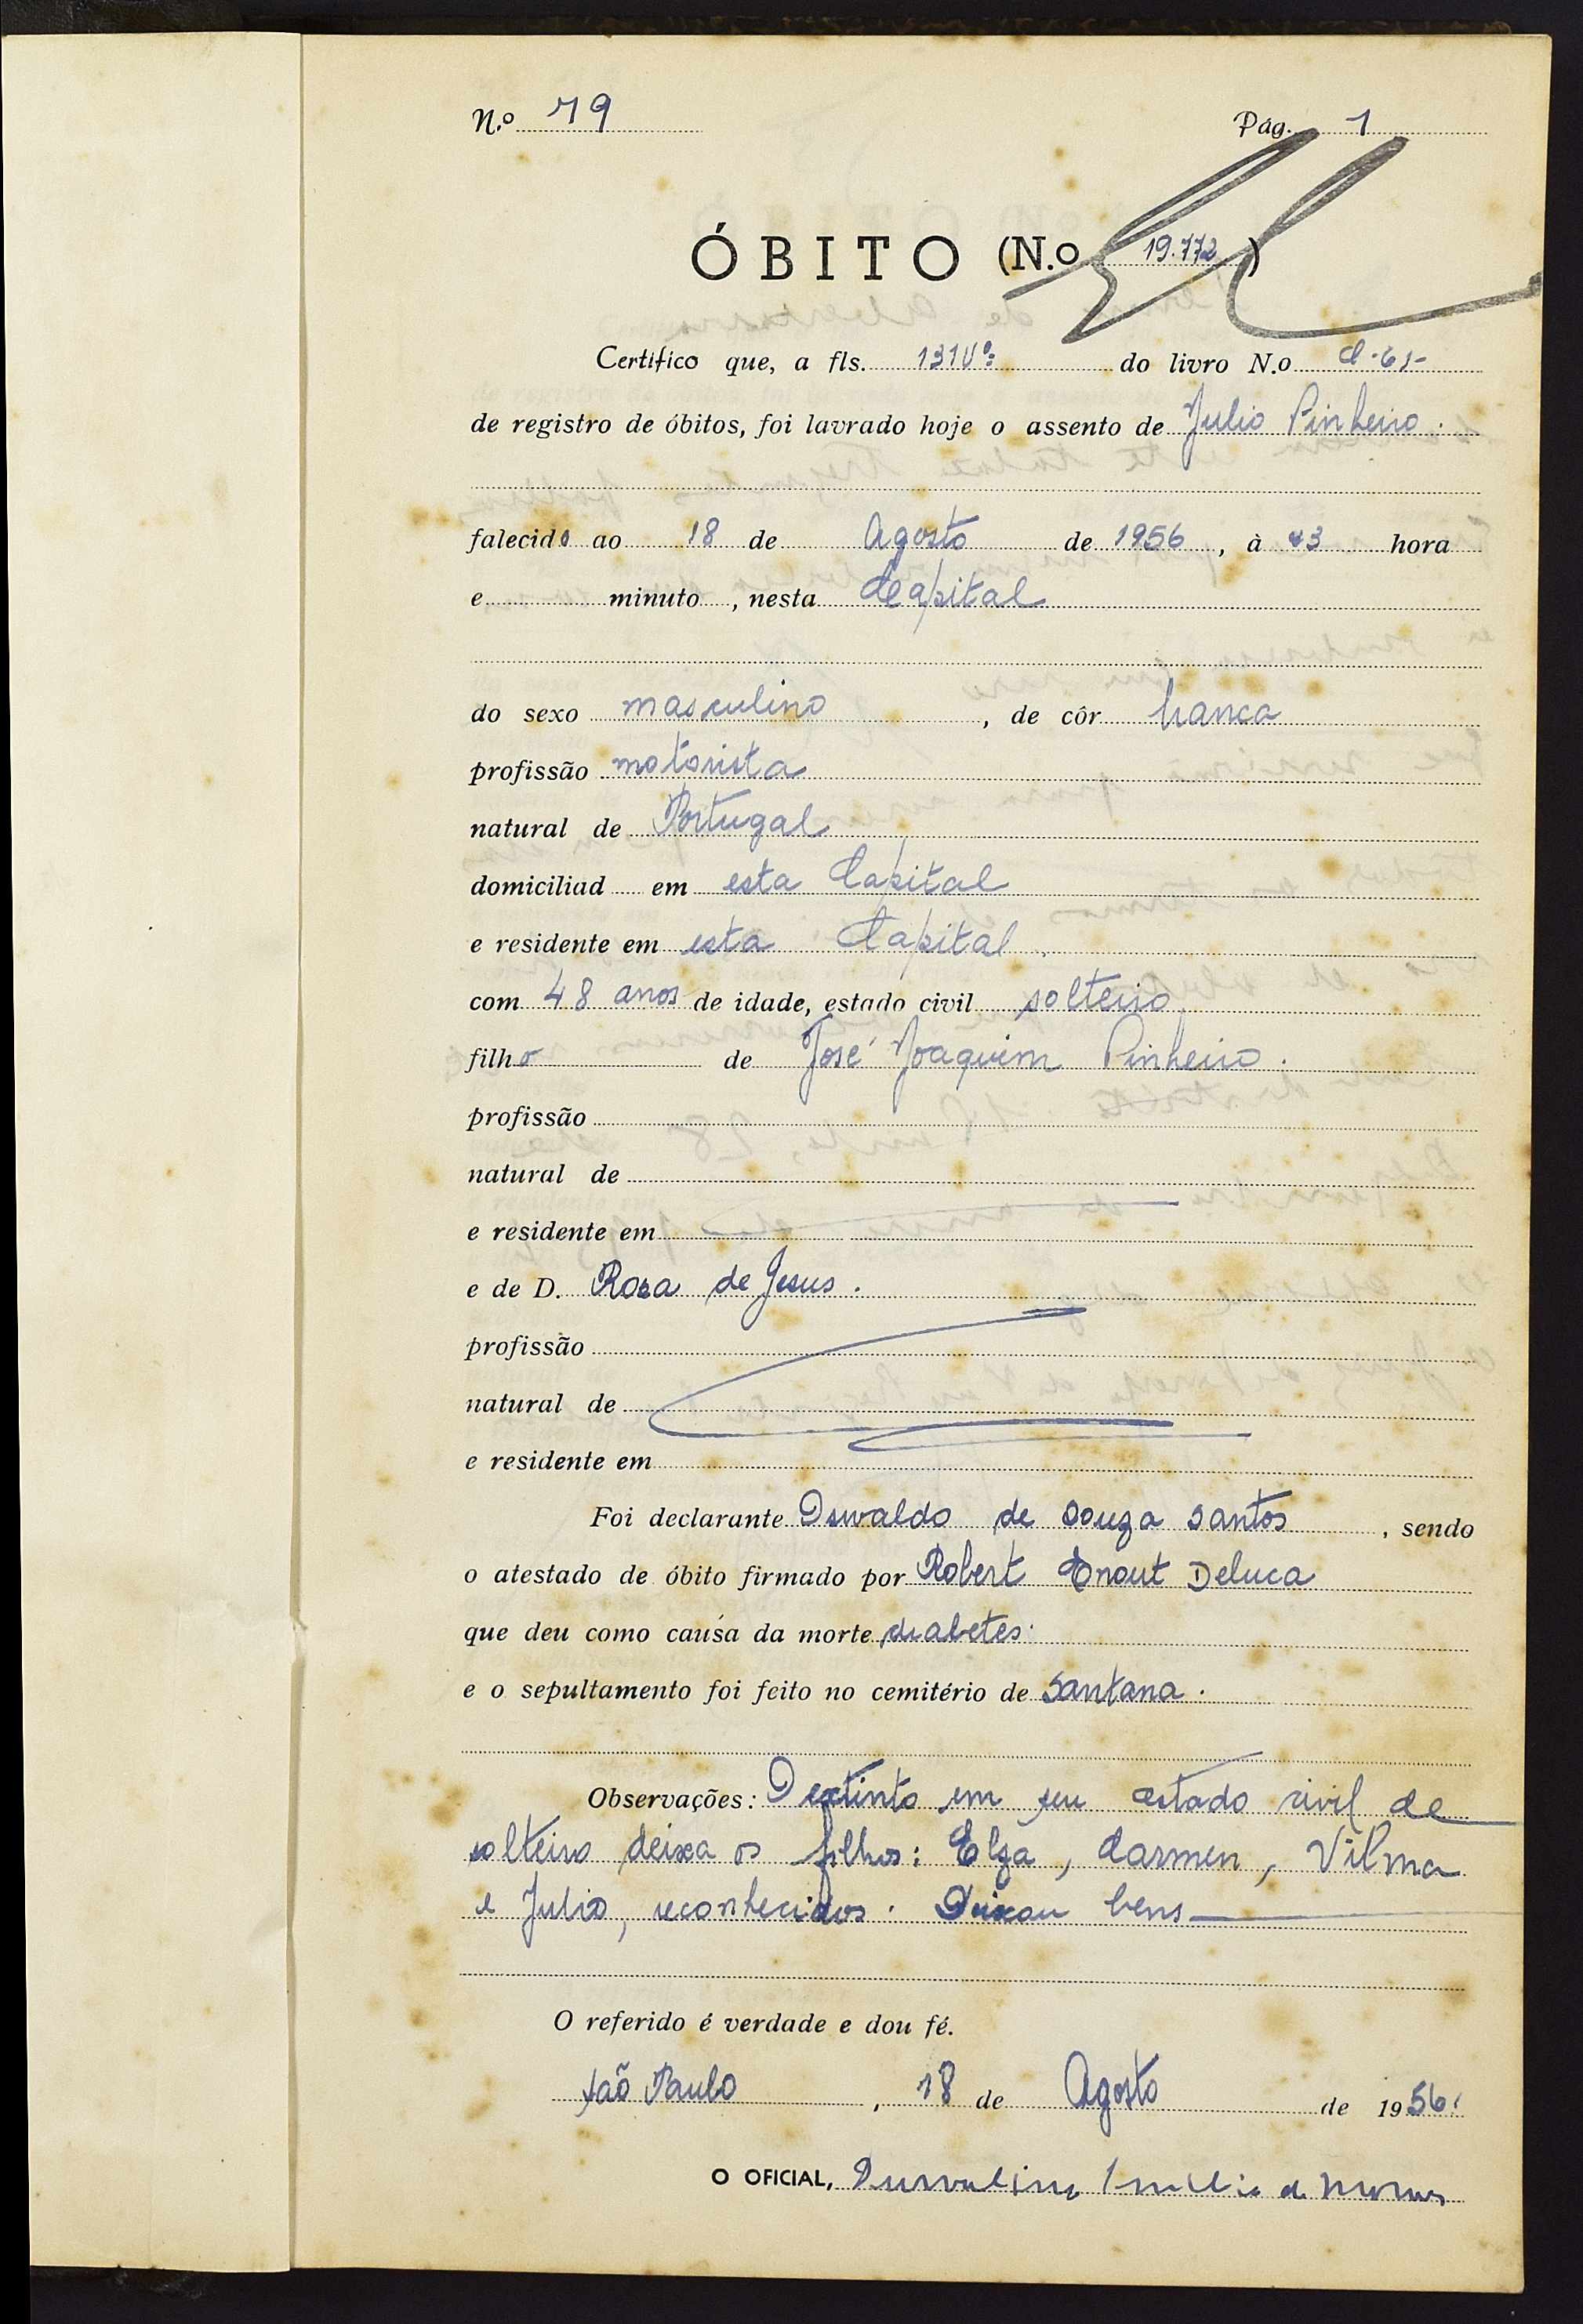 N.o 79 Pág. 1
ÓBITO (N.o 19.772)
Certifico que, a fls. 131Vº: do livro N.o C-61-
de registro de óbitos, foi lavrado hoje o assento de Julio Pinheiro.
falecido ao 18 de Agosto de 1956, à 23 hora
e minuto, nesta Capital
do sexo masculino, de côr branca
profissão motorista
natural de Portugal
domiciliad em esta Capital
e residente em esta Capital.
com 48 anos de idade, estado civil solteiro
filho de José Joaquim Pinheiro.
profissão
natural de
e residente em
e de D. Rosa de Jesus.
profissão
natural de
e residente em
Foi declarante Oswaldo de Souza Santos, sendo
o atestado de óbito firmado por Robert Deluca
que deu como causa da morte diabetes.
e o sepultamento foi feito no cemitério de Santana.
Observações: O extinto em seu estado civil de
solteiro deixa os filhos: Elza, Carmen, Vilma
e Julio, reconhecidos. Deixou bens
O referido é verdade e dou fé.
São Paulo, 18 de Agosto de 1956.
O OFICIAL,